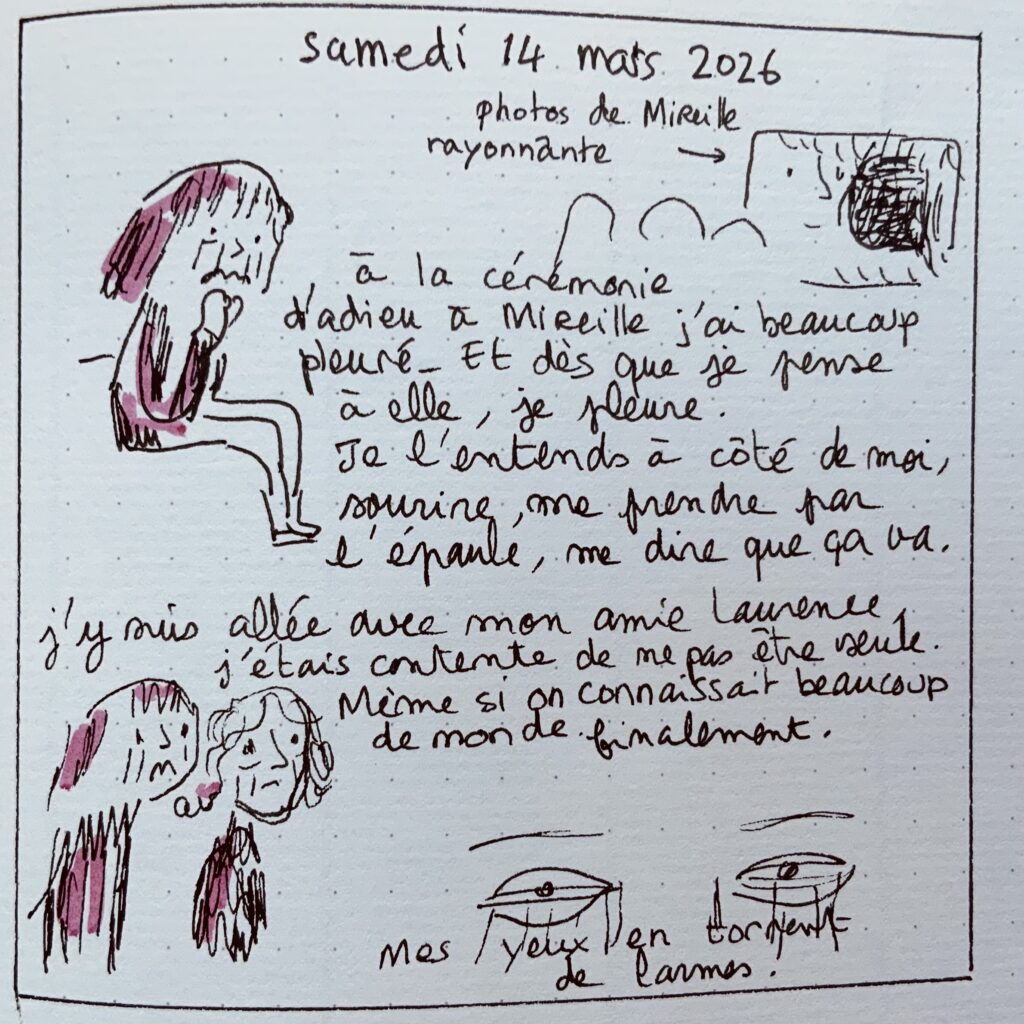 samedi 14 mars 2026
photos de Mireille
rayonnante →
à la cérémonie
d'adieu à Mireille j'ai beaucoup
pleuré_ Et dès que je pense
à elle, je pleure.
Je l'entends à côté de moi,
sourire, me prendre par
l'épaule, me dire que ça va.
j'y suis allée avec mon amie Laurence,
j'étais contente de ne pas être seule.
Même si on connaissait beaucoup
de monde finalement.
Mes yeux en torrent
de larmes.